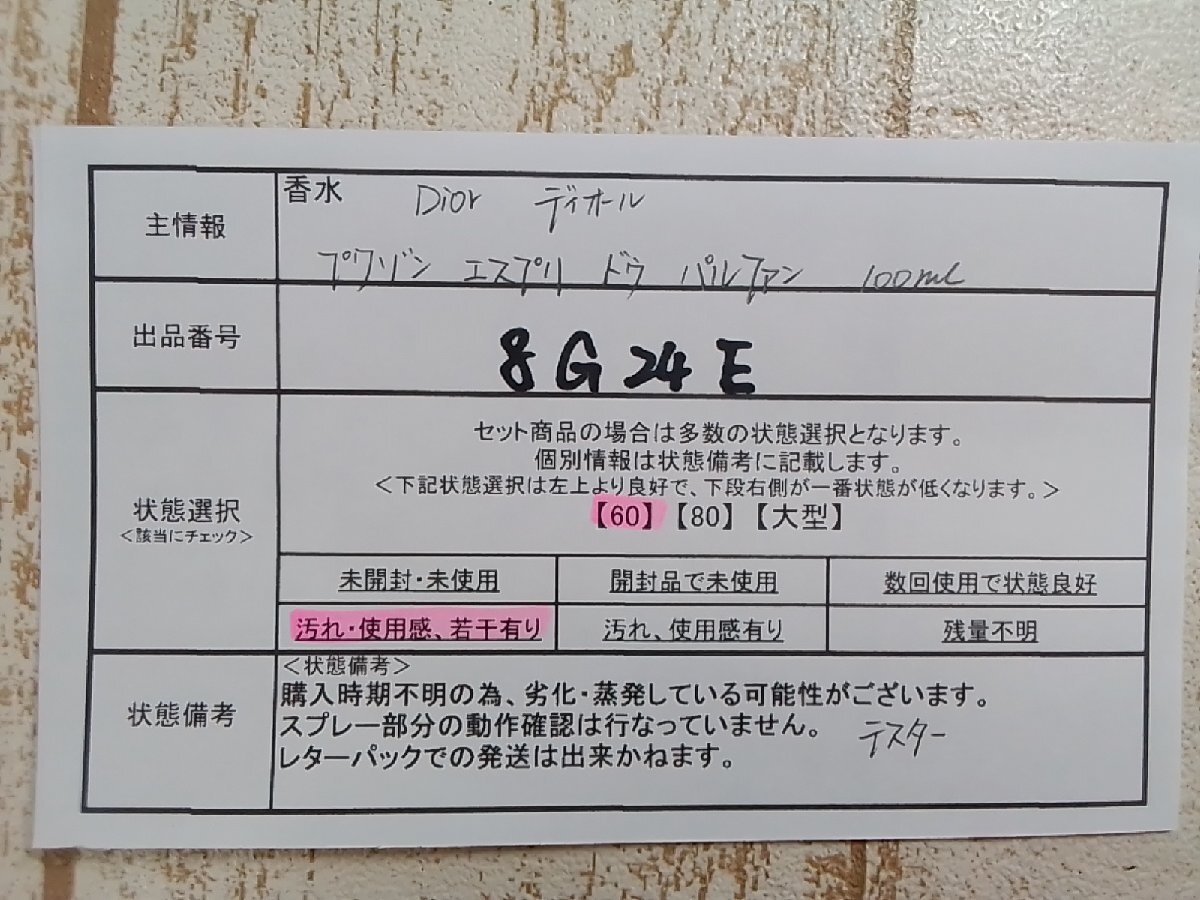 主情報
香水 Dior ディオール
プワゾン エスプリ ドゥ パルファン 100ml
出品番号
8G24E
状態選択
<該当にチェック>
セット商品の場合は多数の状態選択となります。
個別情報は状態備考に記載します。
<下記状態選択は左上より良好で、下段右側が一番状態が低くなります。>
【60】【80】【大型】
未開封・未使用 開封品で未使用 数回使用で状態良好
汚れ・使用感、若干有り 汚れ、使用感有り 残量不明
状態備考
<状態備考>
購入時期不明の為、劣化・蒸発している可能性がございます。
スプレー部分の動作確認は行なっていません。 テスター
レターパックでの発送は出来かねます。